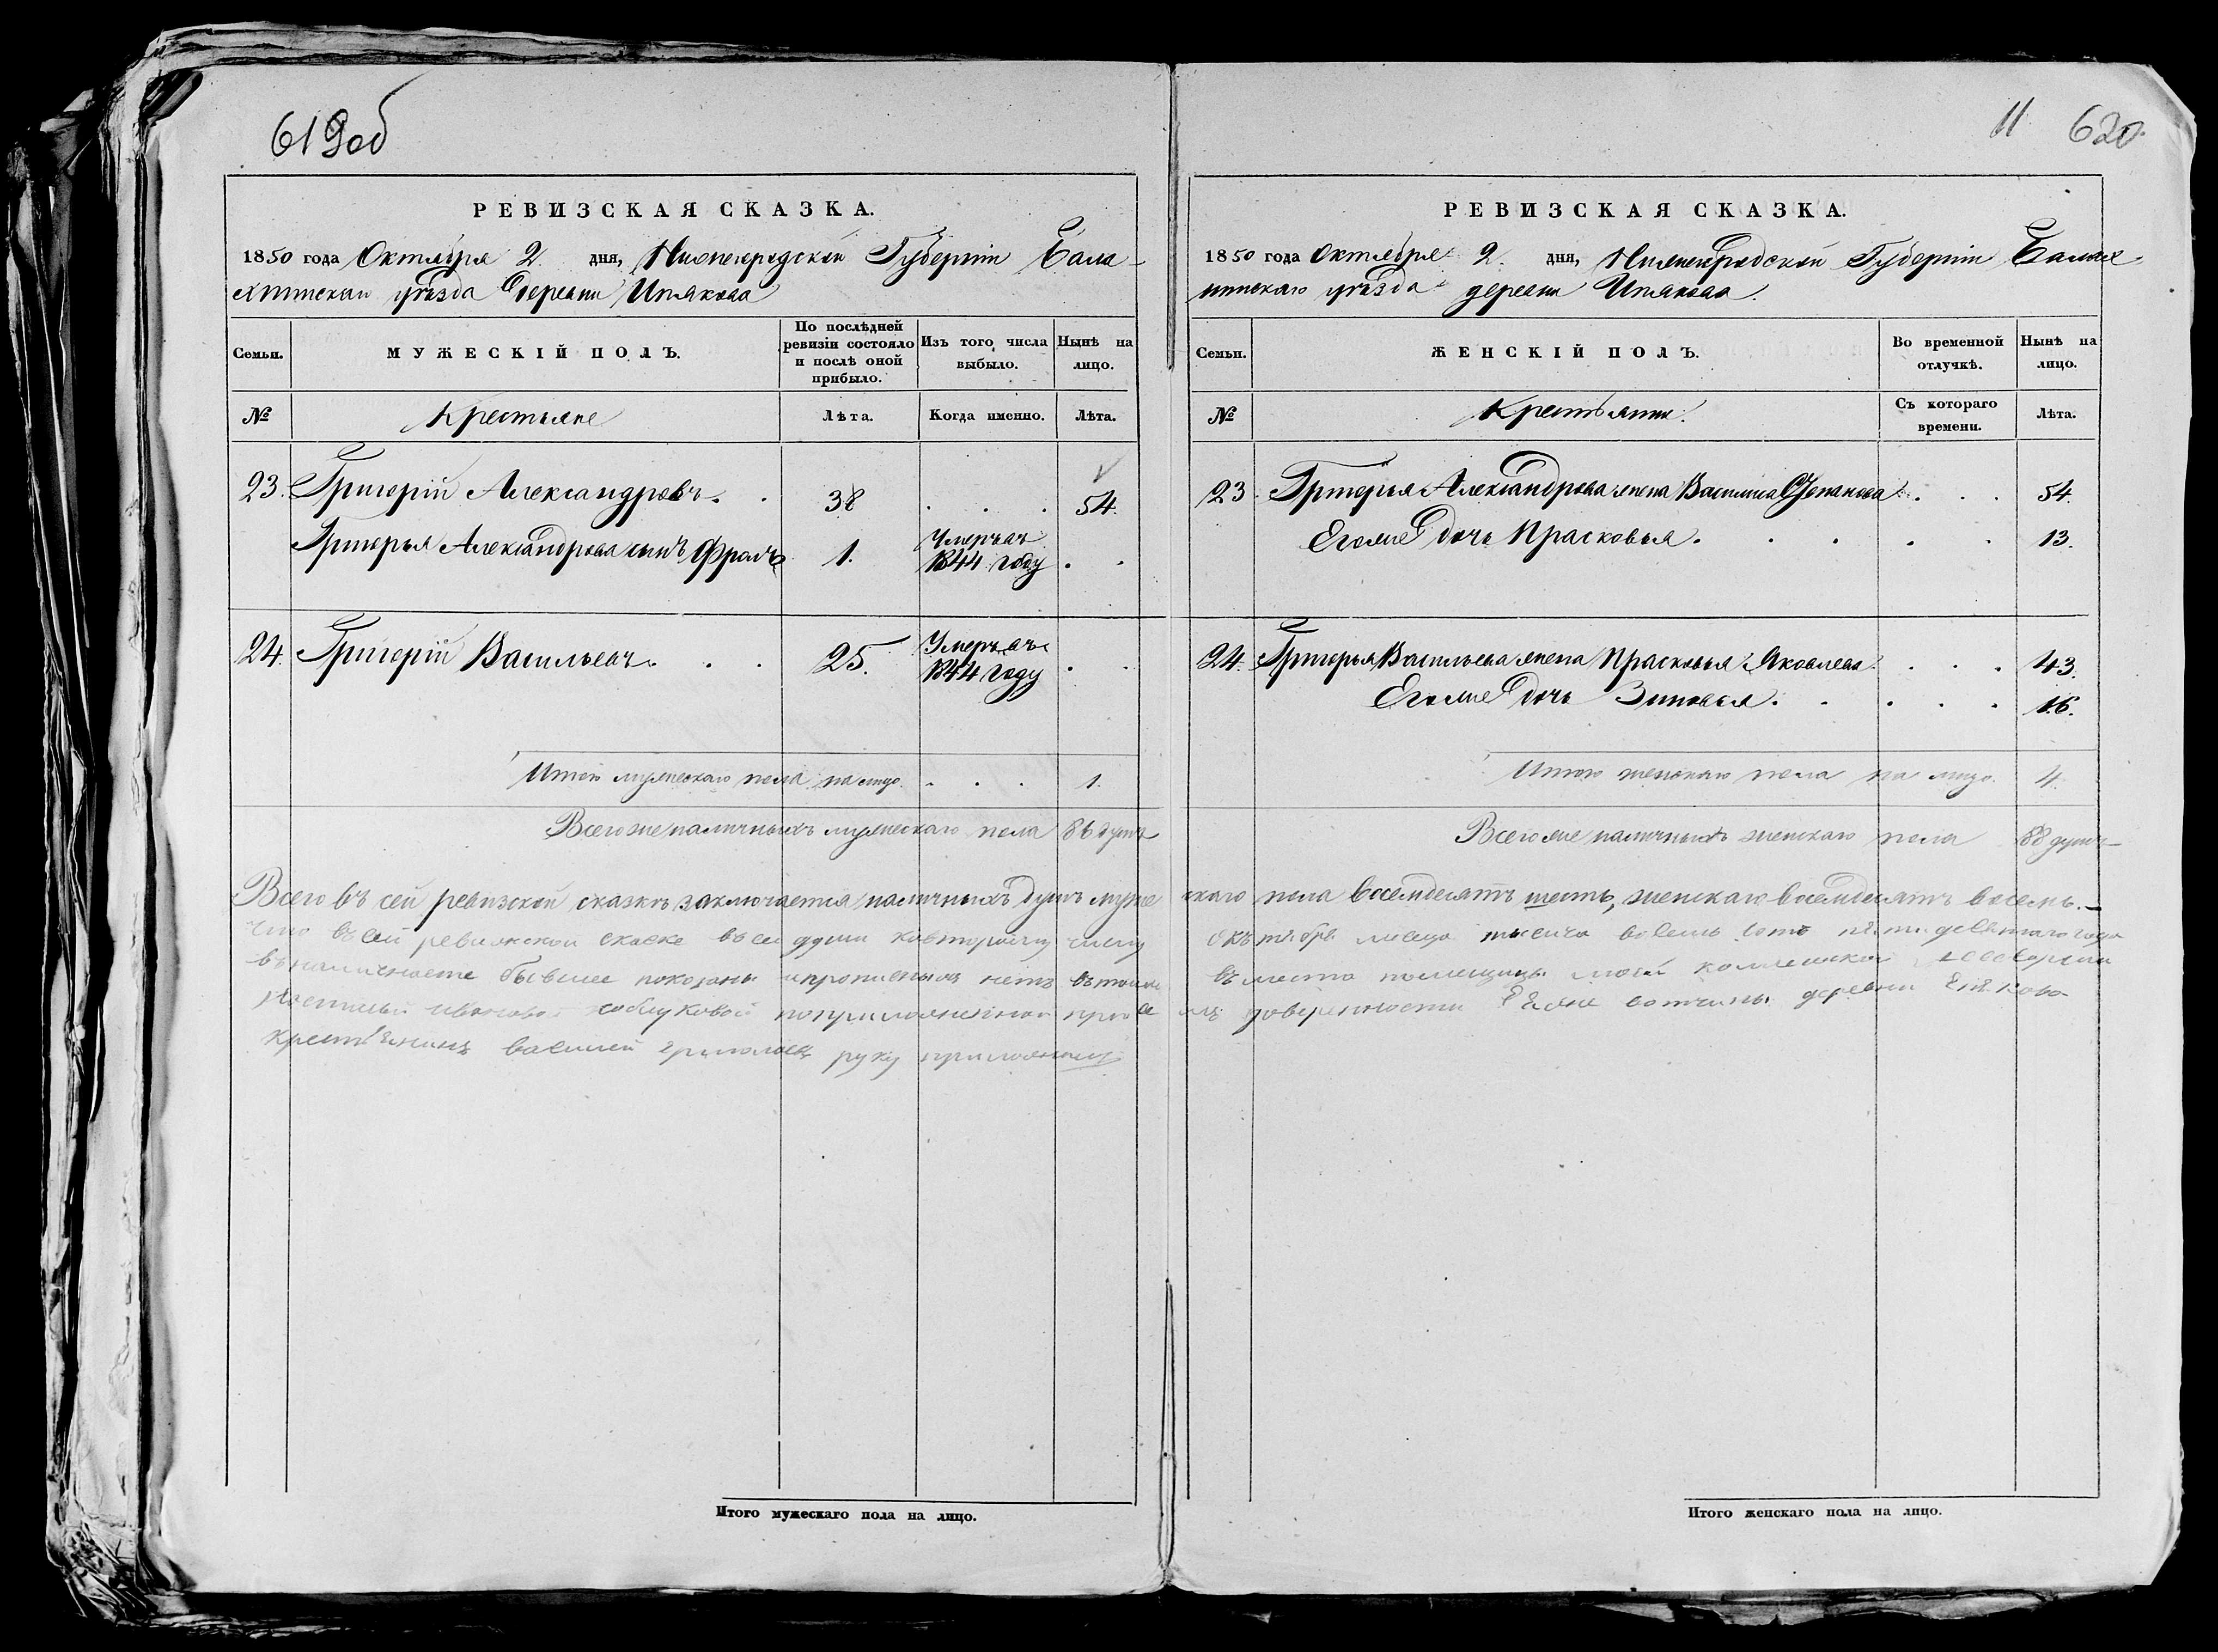 619об
РЕВИЗСКАЯ СКАЗКА.
1850 года Октября 2 дня, Нижегородской Губерніи Бала-
хнинскаго уѣзда деревни
Семьи.
МУЖЕСКІЙ ПОЛЪ.
По послѣдней ревизіи состояло и послѣ оной прибыло.
Изъ того числа выбыло.
Нынѣ на лицо.
№
Крестьяне
Лѣта.
Когда именно.
Лѣта.
23. Григорій Александровъ. 38 54.
Григорья Александрова сынъ Фролъ 1. Умеръ въ 1844 году
24. Григорій Васильевъ. 25. Умеръ въ 1844 году
Итого мужескаго пола на лицо. 1.
Всего же наличныхъ мужескаго пола 86 душъ
Всего въ сей ревизской сказкѣ заключается наличныхъ душъ муже
что въ сей ревижской скаске все души ковторому числу
въ наличносте бывшее показаны и прописныхъ нетъ
по приложенной
крестьянинъ василей ермолаевъ руку приложилъ
Итого мужескаго пола на лицо.
11 620
РЕВИЗСКАЯ СКАЗКА.
1850 года Октября 2 дня, Нижегородской Губерніи Балах
нинскаго уѣзда деревни
Семьи.
ЖЕНСКІЙ ПОЛЪ.
Во временной отлучкѣ.
Нынѣ на лицо.
№
Крестьяне.
Съ котораго времени.
Лѣта.
23 Григорья Александрова жена Василиса Степанова 54.
Его же дочь Прасковья. 13.
24. Григорья Васильева жена Прасковья Яковлева 43.
Его же дочь Зиновья. 16.
Итого женскаго пола на лицо. 4.
Всего же наличныхъ женскаго пола 88 душъ
скаго пола восемдесятъ шесть, женскаго восемдесятъ восемь.
октября месеца тысеча восемь сотъ года
въместо помещицы моей
доверенности Ее же вотчины деревни
Итого женскаго пола на лицо.